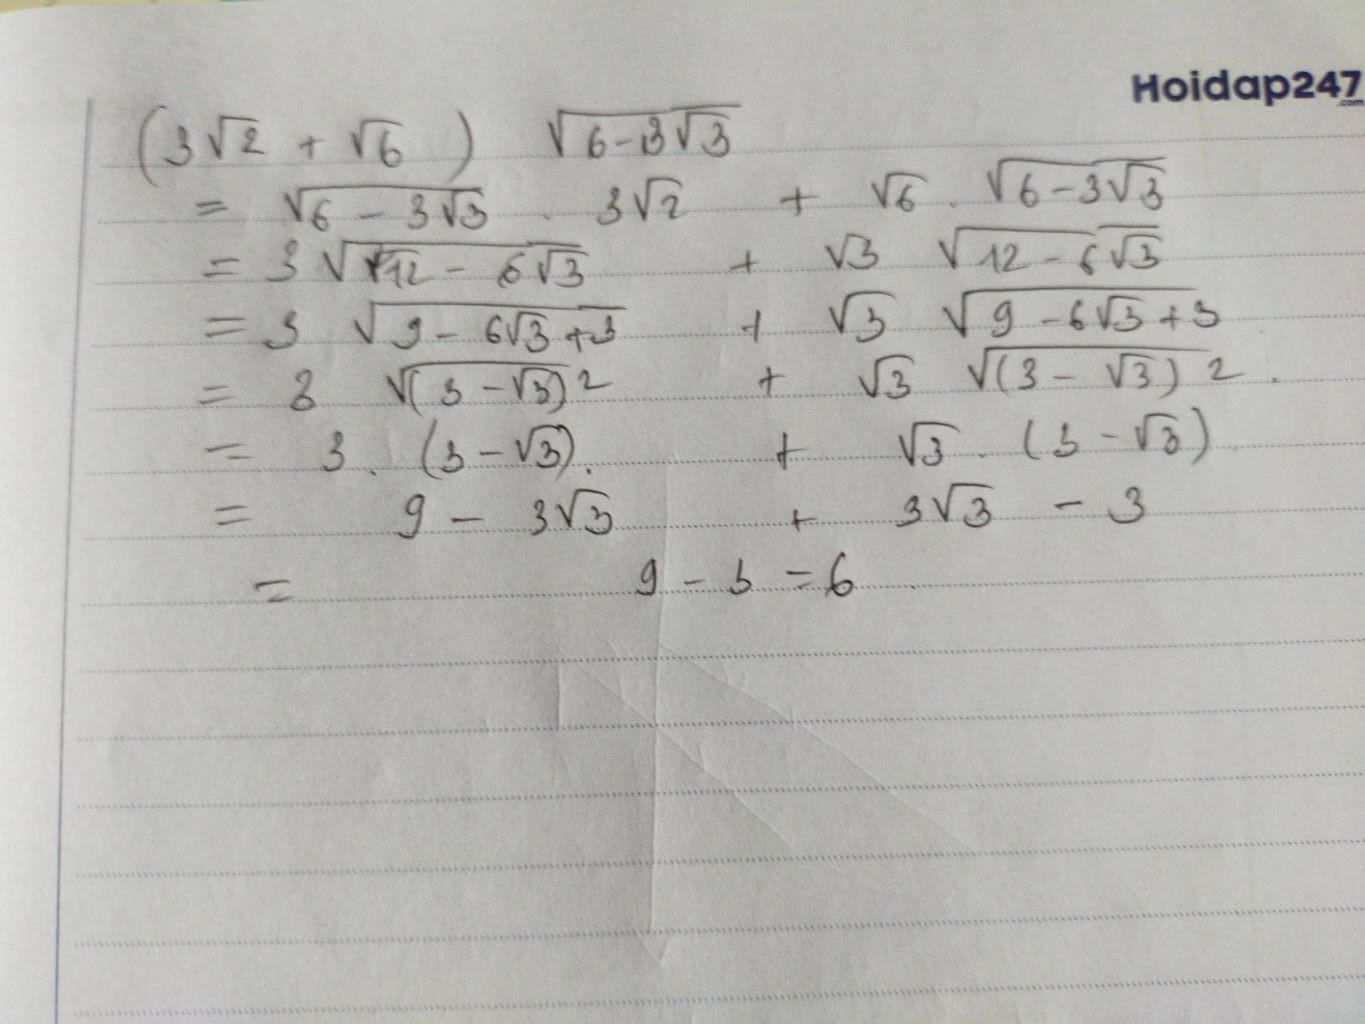 Hoidap247
.com
(3√2 + √6) √(6-3√3)
= √(6 - 3√3) . 3√2 + √6 . √(6-3√3)
= 3 √(12 - 6√3) + √3 √(12-6√3)
= 3 √(9 - 6√3+3) + √3 √(9-6√3+3)
= 3 √((3-√3)2) + √3 √((3-√3)2) .
= 3 . (3-√3) . + √3 . (3-√3)
= 9 - 3√3 + 3√3 - 3
= 9 - 3 = 6